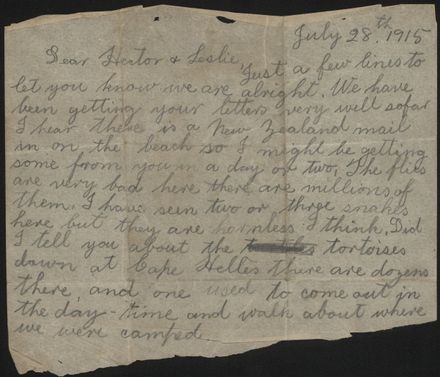 July 28.th 1915
Dear Hector & Leslie
Just a few lines to
let you know we are alright. We have
been getting your letters very well so far
I hear there is a New Zealand mail
in on the beach so I might be getting
some from you in a day or two. The flies
are very bad here there are millions of
them. I have seen two or three snakes
here but they are hornless I think. Did
I tell you about the tortoises
down at Cape Helles there are dozens
there, and one used to come out in
the day-time and walk about where
we were camped